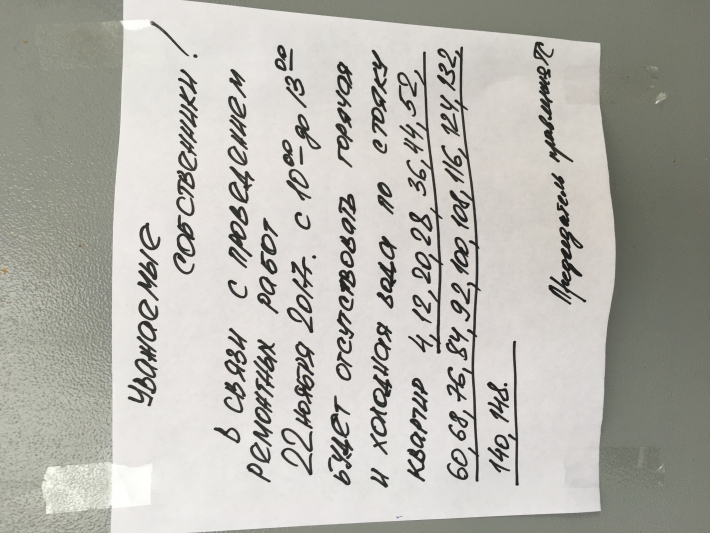 Уважаемые
собственники!
В связи с проведением
ремонтных работ
22 ноября 2017г. с 10⁰⁰ до 13⁰⁰
будет отсутствовать горячая
и холодная вода по стояку
квартир 4, 12, 20, 28, 36, 44, 52,
60, 68, 76, 84, 92, 100, 108, 116, 124, 132,
140, 148.
Председатель правления